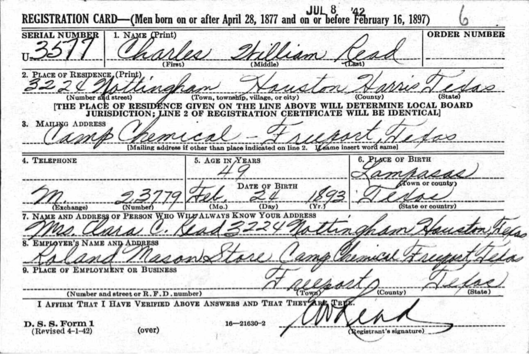 JUL 8 '42
REGISTRATION CARD—(Men born on or after April 28, 1877 and on or before February 16, 1897) 6
SERIAL NUMBER 1. NAME (Print) ORDER NUMBER
U3577 Charles William Read
(First) (Middle) (Last)
2. PLACE OF RESIDENCE (Print)
3224 Nottingham Houston Harris Texas
(Number and street) (Town, township, village, or city) (County) (State)
[THE PLACE OF RESIDENCE GIVEN ON THE LINE ABOVE WILL DETERMINE LOCAL BOARD
JURISDICTION; LINE 2 OF REGISTRATION CERTIFICATE WILL BE IDENTICAL]
3. MAILING ADDRESS
Camp Chemical - Freeport, Texas
[Mailing address if other than place indicated on line 2. If same insert word same]
4. TELEPHONE 5. AGE IN YEARS 6. PLACE OF BIRTH
49 Lampasas
DATE OF BIRTH (Town or county)
M. 23779 Feb. 24 1893 Texas
(Exchange) (Number) (Mo.) (Day) (Yr.) (State or country)
7. NAME AND ADDRESS OF PERSON WHO WILL ALWAYS KNOW YOUR ADDRESS
Mrs. Clara C. Read 3224 Nottingham Houston, Texas
8. EMPLOYER'S NAME AND ADDRESS
Roland Mason Store Camp Chemical Freeport Texas
9. PLACE OF EMPLOYMENT OR BUSINESS
Freeport Texas
(Number and street or R. F. D. number) (Town) (County) (State)
I AFFIRM THAT I HAVE VERIFIED ABOVE ANSWERS AND THAT THEY ARE TRUE.
D. S. S. Form 1 CW Read
(Revised 4-1-42) (over) 16—21630-2 (Registrant's signature)